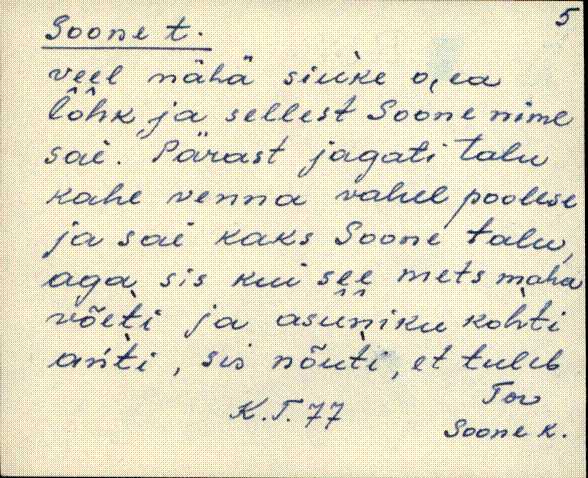 5
Soone t.
veel nähä siuke o,ea
lôhk ja sellest Soone nime
sai. Pärast jagati talu
kahe venna vahel poolese
ja sai kaks Soone talu,
aga sis kui see mets maha
võeti ja asuniku kohti
anti, sis nõuti, et tuleb
K.T. 77
Tor
Soone k.